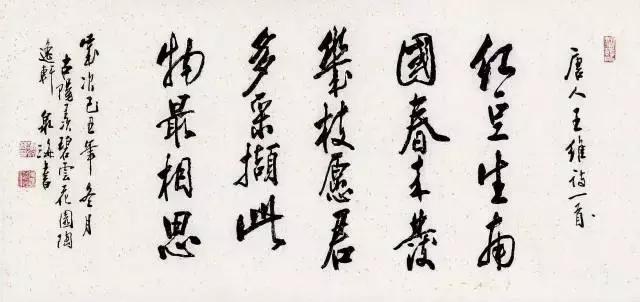 唐人王維詩一首
紅豆生南
國春来發
幾枝愿君
多采擷此
物最相思
歲次己丑年冬月
古陽羨碧雲花園陶
逸軒 泉海書